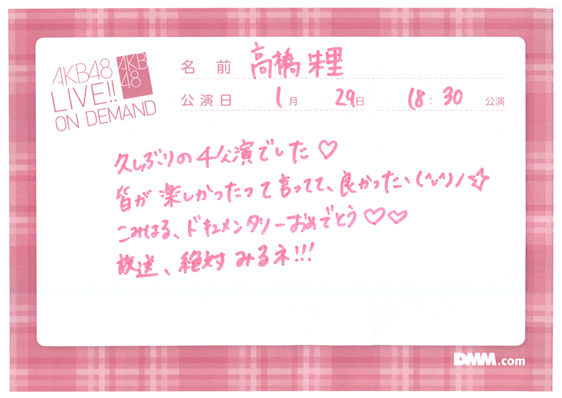 AKB48
LIVE!!
ON DEMAND
AKB
48
名 前 高橋朱里
公演日 1月 29日 18:30 公演
久しぶりの4公演でした♡
皆が楽しかったって言ってて、良かたい(^^)ノ☆
こみはる、ドキュメンタリーおめでとう♡♡
放送、絶対みるネ!!!
DMM.com